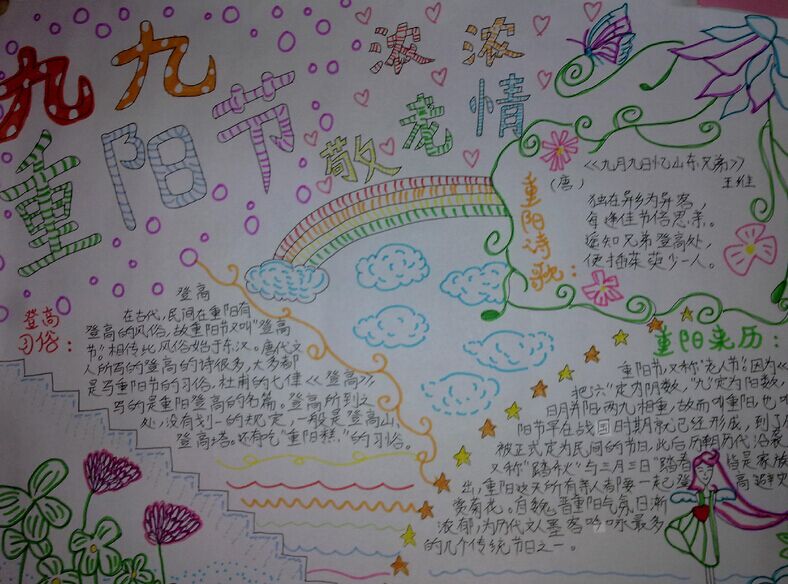 九九
重阳节
浓浓
敬老情
重阳诗歌：
《九月九日忆山东兄弟》
（唐） 王维
独在异乡为异客，
每逢佳节倍思亲。
遥知兄弟登高处，
便插茱萸少一人。
登高
习俗：
登高
在古代，民间在重阳有
登高的风俗，故重阳节又叫“登高
节”。相传此风俗始于东汉。唐代文
人所写的登高的诗很多，大多都
是写重阳节的习俗。杜甫的七律《登高》，
写的是重阳登高的名篇。登高所到之
处，没有划一的规定，一般是登高山、
登高塔。还有吃“重阳糕”的习俗。
重阳来历：
重阳节，又称“老人节”因为《
把“六”定为阴数，“九”定为阳数，
日月并阳，两九相重，故而叫重阳，也叫
阳节早在战国时期就已经形成，到了
被正式定为民间的节日，此后历朝历代沿袭
又称“踏秋”与三月三日“踏春”皆是家族
出，重阳这天所有亲人都要一起登高避灾
赏菊花。
重阳气氛日渐
浓郁，为历代文人墨客吟咏最多
的几个传统节日之一。